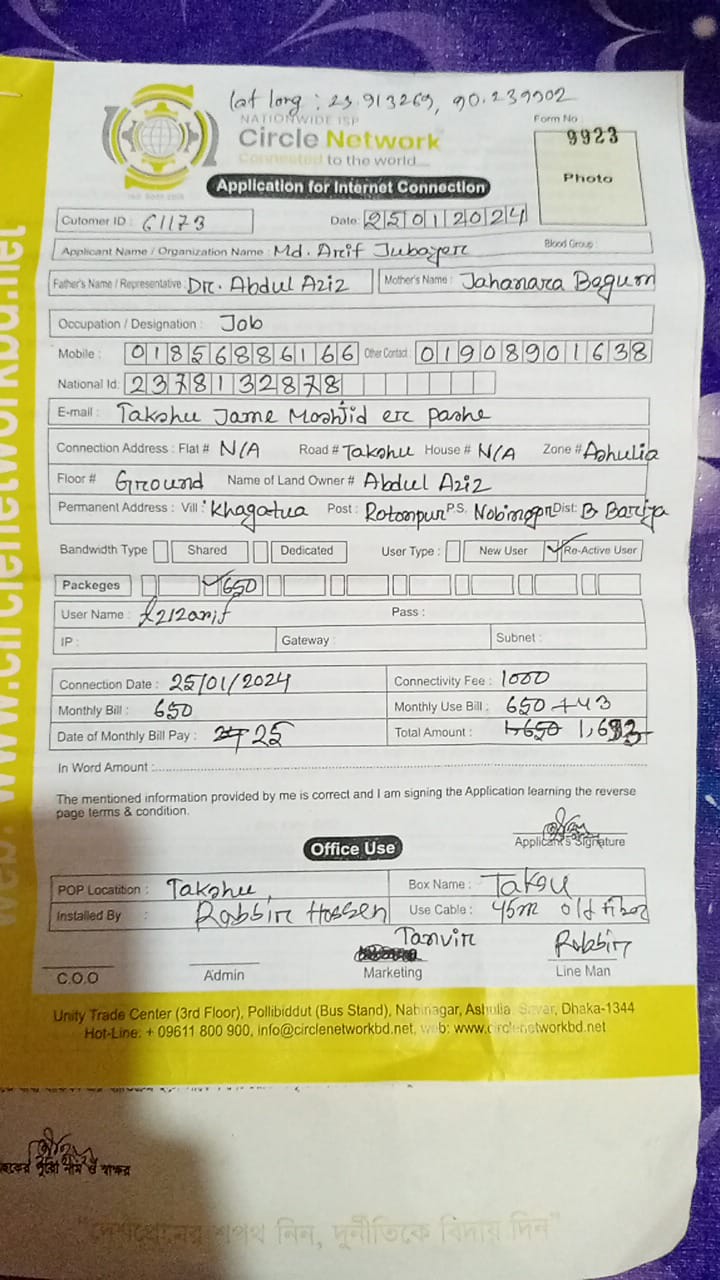 lat long : 23.913269, 90.239902
NATIONWIDE ISP
Circle Network
Connected to the world...
Form No
9923
Photo
Application for Internet Connection
Cutomer ID : 61173 Date: 25012024
Applicant Name / Organization Name : Md. Arif Jubayer Blood Group :
Father's Name / Representative : Dr. Abdul Aziz Mother's Name : Jahanara Begum
Occupation / Designation : Job
Mobile : 01856886166 Other Contact : 01908901638
National Id: 2378132878
E-mail : Takshu Jame Moshjid er pashe
Connection Address : Flat # N/A Road # Takshu House # N/A Zone # Ashulia
Floor # Ground Name of Land Owner # Abdul Aziz
Permanent Address : Vill : Khagatua Post : Rotonpur P.S. Nobinogor Dist: B Bariya
Bandwidth Type Shared Dedicated User Type : New User Re-Active User
Packeges 650
User Name : 212arif Pass :
IP : Gateway : Subnet :
Connection Date : 25/01/2024 Connectivity Fee : 1000
Monthly Bill : 650 Monthly Use Bill : 650 + 43
Date of Monthly Bill Pay : 25 Total Amount : 1650 1,693
In Word Amount :
The mentioned information provided by me is correct and I am signing the Application learning the reverse
page terms & condition.
Applicant's Signature
Office Use
POP Locatition : Takshu, Box Name : Taksu
Installed By : Robbin Hossen Use Cable : 45m old fiber
Tanvir Robbin
C.O.O Admin Marketing Line Man
Unity Trade Center (3rd Floor), Pollibiddut (Bus Stand), Nabinagar, Ashulia, Savar, Dhaka-1344
Hot-Line: + 09611 800 900, info@circlenetworkbd.net, web: www.circlenetworkbd.net
web: www.circlenetworkbd.net
পুরো নাম ও স্বাক্ষর
"দেশপ্রেমের শপথ নিন, দুর্নীতিকে বিদায় দিন"